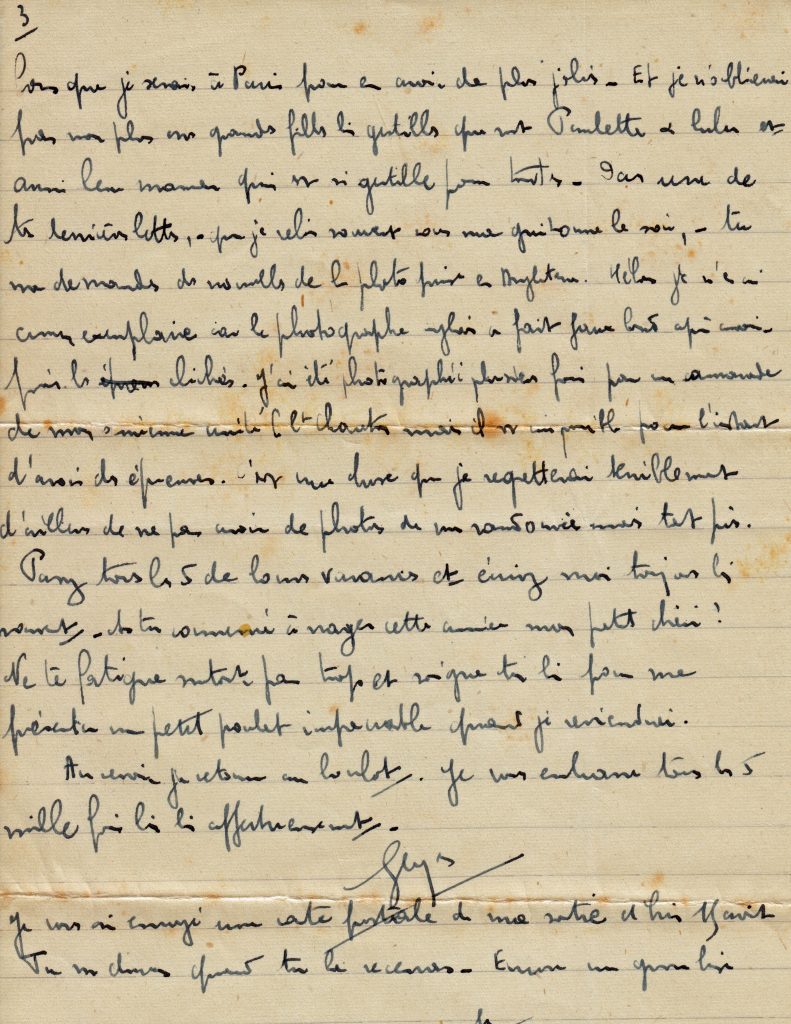 3
que je serais à Paris pour en avoir de plus jolis - Et je n'oublierai
pas non plus mes grandes filles si gentilles que sont Paulette & Lulu et
aussi leur maman qui est si gentille pour toutes - Dans une de
tes dernières lettres, - que je relis souvent le soir, - tu
me demandes des nouvelles de la photo prise en Angleterre. Hélas je n'en ai
aucun exemplaire car le photographe anglais a fait faux bond après avoir
pris les clichés. J'ai été photographié plusieurs fois par un camarade
de mon même unité mais il est impossible pour l'instant
d'avoir des épreuves. C'est une chose que je regretterai terriblement
d'ailleurs de ne pas avoir de photos de ma randonnée mais tant pis.
Passez tous les 5 de bonnes vacances et écrivez moi toujours si
souvent - As tu commencé à nager cette année mon petit chéri ?
Ne te fatigue surtout pas trop et soigne toi bien pour me
présenter un petit poulet impeccable quand je reviendrai.
Au revoir je retourne au boulot. Je vous embrasse tous les 5
mille fois bien bien affectueusement -
Je vous ai envoyé une carte postale de ma sortie d'hier
Tu me diras quand tu la recevras - Encore un gros bisou